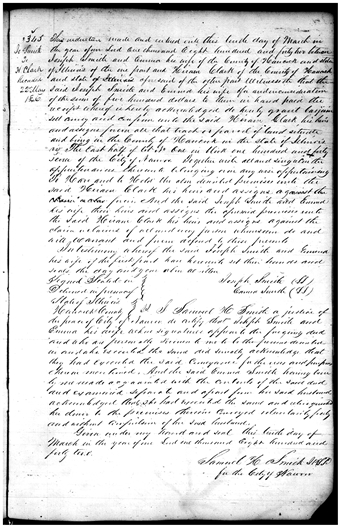 This indenture made and entered into this tenth day of March in
the year of our Lord one thousand Eight hundred and forty two between
Joseph Smith and Emma his wife of the County of Hancock and State
of Illinois of the one part and Hiram Clark of the County of Hancock
and State of Illinois of the other part Witnesseth that the
said Joseph Smith and Emma his wife for and in consideration
of the sum of five hundred dollars to them in hand paid the
receipt whereof is hereby acknowledged do hereby grant bargain
sell and confirm unto the said Hiram Clark his heirs
and assigns forever all that tract or parcel of land situate
and lying in the County of Hancock in the State of Illinois
the East half of Lot
of the City of Nauvoo Together with all and singular the
appurtenances thereunto belonging or in any wise appertaining
To Have and to Hold the above described premises unto the
said Hiram Clark his heirs and assigns
forever And the said Joseph Smith and Emma
his wife their heirs and assigns the aforesaid premises unto
the said Hiram Clark his heirs and assigns against the
claim or claims of all and every person whomsoever do and
will Warrant and forever defend by these presents
In testimony whereof the said Joseph Smith and Emma
his wife of the first part have hereunto set their hands and
seals the day and year above written
Signed Sealed and
Delivered in presence of
Joseph Smith
Emma Smith
State of Illinois
Hancock County
I Samuel H. Smith a justice of
the peace of City of Nauvoo certify that Joseph Smith and
Emma his wife whose signatures appear to the foregoing deed
and who are personally known to me to be the persons
executed the same did severally acknowledge that
they had executed the same for the uses and purposes
therein mentioned. And the said Emma Smith having been by
me made acquainted with the contents of the same deed
and examined separate and apart from her said husband
acknowledged that she had executed the same and relinquished
her dower to the premises therein conveyed voluntarily freely
and without compulsion of her said husband.
Given under my hand and seal this tenth day of
March in the year of our Lord one thousand Eight hundred and
forty two.
Samuel H. Smith
for the City of Nauvoo